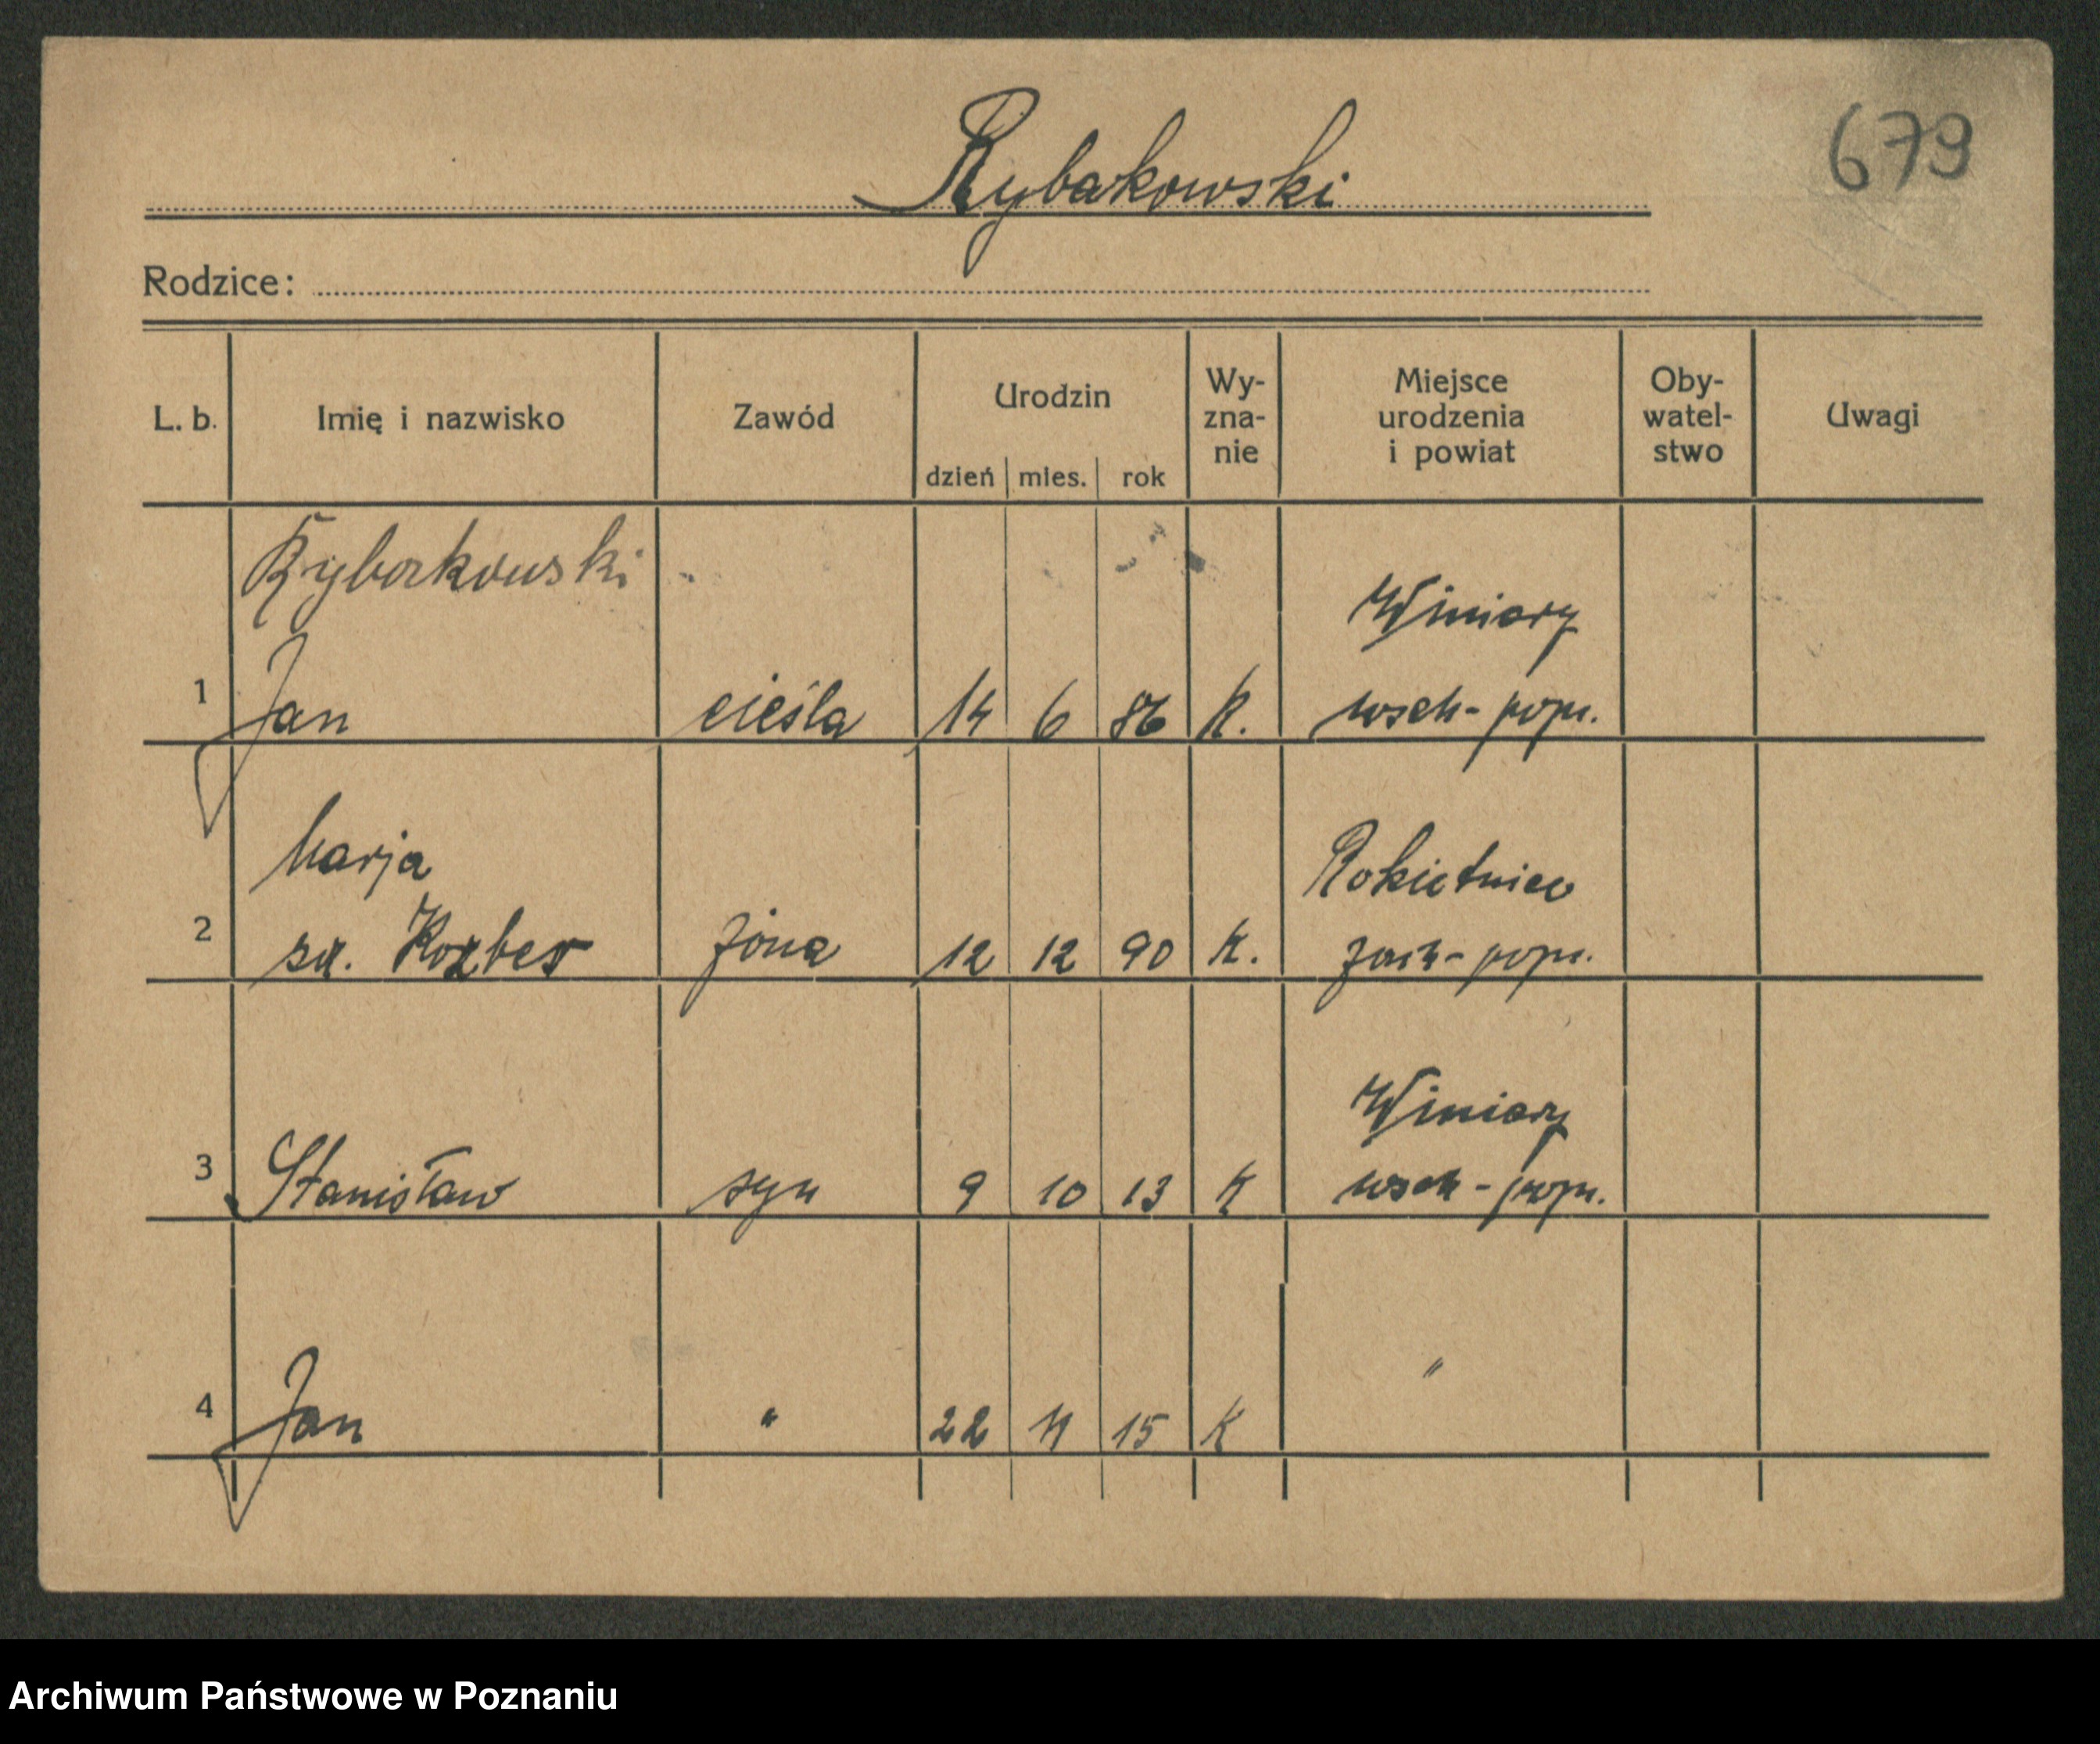 Rybakowski
679
Rodzice:
L. b. Imię i nazwisko Zawód Urodzin dzień mies. rok Wy-zna-nie Miejsce urodzenia i powiat Oby-watel-stwo Uwagi
Rybakowski Winiary
1 Jan cieśla 14 6 86 K. wsch-pozn.
Marja Rokietnica
2 żona 12 12 90 K. zach-pozn.
Winiary
3 Stanisław syn 9 10 13 K wsch-pozn.
"
4 Jan " 22 15 K
Archiwum Państwowe w Poznaniu